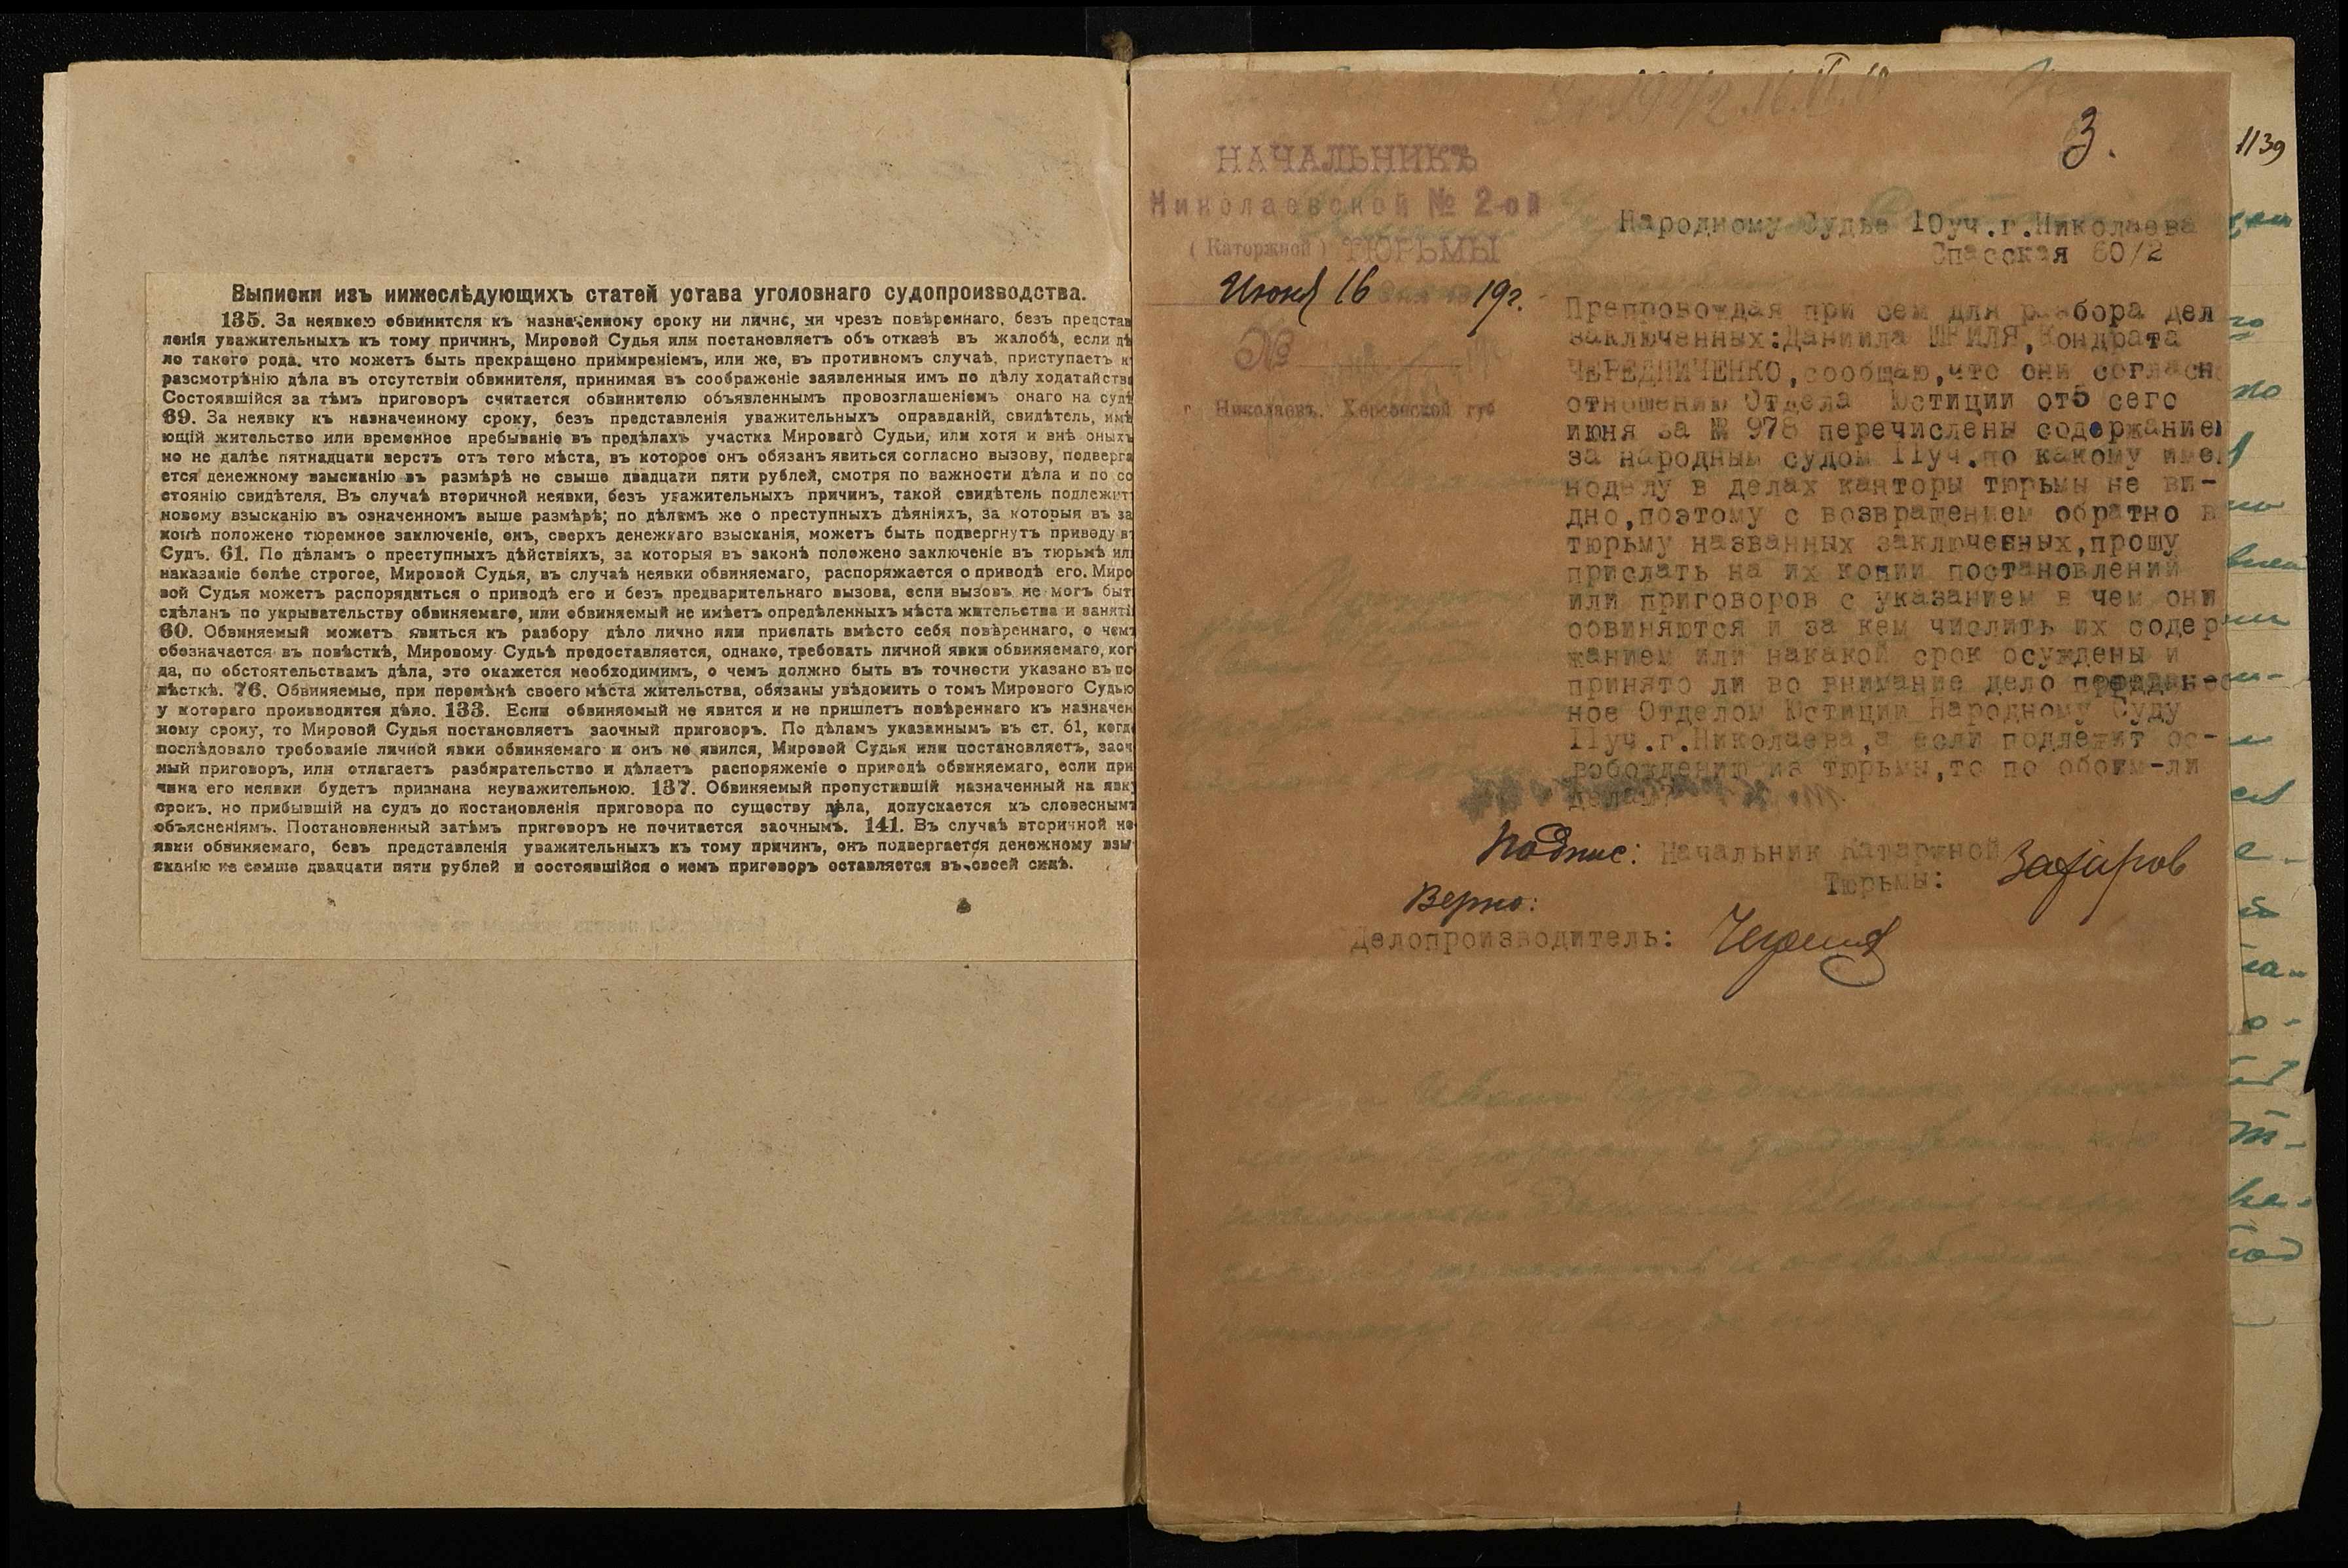 Выписки изъ нижеслѣдующихъ статей устава уголовнаго судопроизводства.
135. За неявкою обвинителя къ назначенному сроку ни лично, ни чрезъ повѣреннаго, безъ представ
ленія уважительныхъ къ тому причинъ, Мировой Судья или постановляетъ объ отказѣ въ жалобѣ, если дѣ
ло такого рода, что можетъ быть прекращено примиреніемъ, или же, въ противномъ случаѣ, приступаетъ к
разсмотрѣнію дѣла въ отсутствіи обвинителя, принимая въ соображеніе заявленныя имъ по дѣлу ходатайства
Состоявшійся за тѣмъ приговоръ считается обвинителю объявленнымъ провозглашеніемъ онаго на судѣ
69. За неявку къ назначенному сроку, безъ представленія уважительныхъ оправданій, свидѣтель, имѣ
ющій жительство или временное пребываніе въ предѣлахъ участка Мироваго Судьи, или хотя и внѣ оныхъ
но не далѣе пятнадцати верстъ отъ того мѣста, въ которое онъ обязанъ явиться согласно вызову, подверга
ется денежному взысканію въ размѣрѣ не свыше двадцати пяти рублей, смотря по важности дѣла и по со
стоянію свидѣтеля. Въ случаѣ вторичной неявки, безъ уважительныхъ причинъ, такой свидѣтель подлежит
новому взысканію въ означенномъ выше размѣрѣ; по дѣламъ же о преступныхъ дѣяніяхъ, за которыя въ за
конѣ положено тюремное заключеніе, онъ, сверхъ денежнаго взысканія, можетъ быть подвергнутъ приводу в
Судъ. 61. По дѣламъ о преступныхъ дѣйствіяхъ, за которыя въ законѣ положено заключеніе въ тюрьмѣ ил
наказаніе болѣе строгое, Мировой Судья, въ случаѣ неявки обвиняемаго, распоряжается о приводѣ его. Миро
вой Судья можетъ распорядиться о приводѣ его и безъ предварительнаго вызова, если вызовъ не могъ быт
сдѣланъ по укрывательству обвиняемаго, или обвиняемый не имѣетъ опредѣленныхъ мѣста жительства и заняті
60. Обвиняемый можетъ явиться къ разбору дѣло лично или прислать вмѣсто себя повѣреннаго, о чем
обозначается въ повѣсткѣ, Мировому Судьѣ предоставляется, однако, требовать личной явки обвиняемаго, ког
да, по обстоятельствамъ дѣла, это окажется необходимимъ, о чемъ должно быть въ точности указано въ по
вѣсткѣ. 76. Обвиняемые, при перемѣнѣ своего мѣста жительства, обязаны увѣдомить о томъ Мирового Судью
у котораго производится дѣло. 133. Если обвиняемый не явится и не пришлетъ повѣреннаго къ назначен
ному сроку, то Мировой Судья постановляетъ заочный приговоръ. По дѣламъ указаннымъ въ ст. 61, когда
послѣдовало требованіе личной явки обвиняемаго и онъ не явился, Мировой Судья или постановляетъ, заоч
ный приговоръ, или отлагаетъ разбирательство и дѣлаетъ распоряженіе о приводѣ обвиняемаго, если при
чина его неявки будетъ признана неуважительною. 137. Обвиняемый пропустившій назначенный на явк
срокъ, но прибывшій на судъ до постановленія приговора по существу дѣла, допускается къ словеснымъ
объясненіямъ. Постановленный затѣмъ приговоръ не почитается заочнымъ. 141. Въ случаѣ вторичной не
явки обвиняемаго, безъ представленія уважительныхъ къ тому причинъ, онъ подвергается денежному взы
сканію не свыше двадцати пяти рублей и состоявшійся о немъ приговоръ оставляется въ своей силѣ.
3.
1139
НАЧАЛЬНИКЪ
Николаевской № 2-ой
(Каторжной) ТЮРЬМЫ
Июня 16 19г.
№
г. Николаевъ. Херсонской губ
Народному Судье 10уч.г.Николаева
Спасская 60/2
Препровождая при сем для разбора дел
заключенных:Даниила ШМИЛЯ,Кондрата
ЧЕРЕДНИЧЕНКО,сообщаю,что они согласн
отношению Отдела Юстиции от5 сего
июня за № 978 перечислены содержанием
за народным судом 11уч.по какому имен
ноделу в делах канторы тюрьмы не ви-
дно,поэтому с возвращением обратно в
тюрьму названных заключенных,прошу
прислать на их копии постановлений
или приговоров с указанием в чем они
обвиняются и за кем числить их содер
жанием или накакой срок осуждены и
принято ли во внимание дело
ное Отделом Юстиции Народному Суду
11уч.г.Николаева,а если подлежит ос-
вобождению из тюрьмы,то по обоим-ли
делам.
Подпис: Начальник Катаржной
Тюрьмы: Захаров
Верно:
Делопроизводитель: